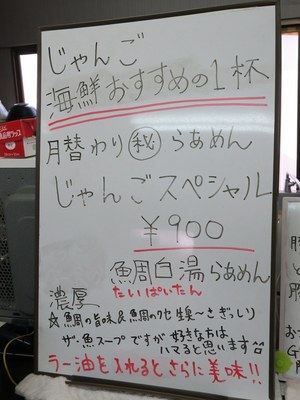 じゃんご
海鮮おすすめの1杯
月替わり㊙らあめん
じゃんごスペシャル
¥900
魚周白湯らあめん
たいぱいたん
濃厚
☆魚周の旨味&魚周の化生臭〜さぎっしり
ザ・魚スープですが好きな方は
ハマると思います
ラー油を入れるとさらに美味!!